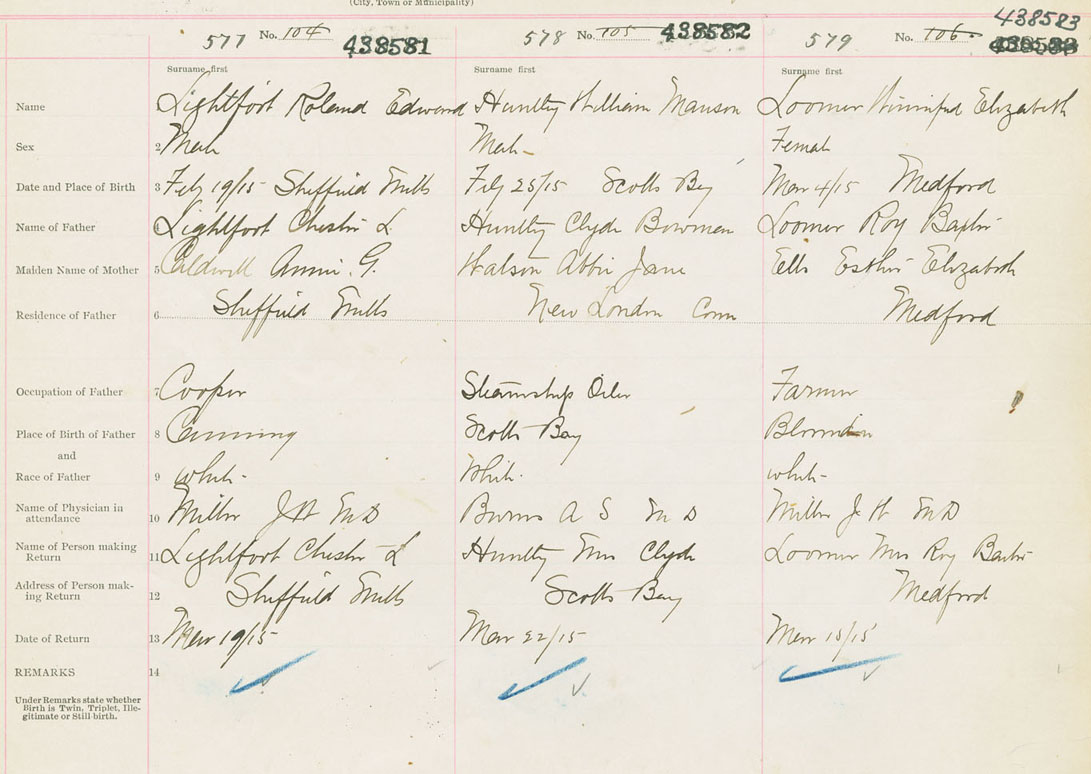 (City, Town or Municipality)
577 No. 104 438581 578 No. 105 438582 579 No. 106 438583
Surname first Surname first Surname first
Name Lightfoot Roland Edward Huntley William Manson Loomer Winnifred Elizabeth
Sex 2 Male Male Female
Date and Place of Birth 3 Feb 19/15 Sheffield Mills Feby 25/15 Scotts Bay Mar 4/15 Medford
Name of Father 4 Lightfoot Chester L. Huntley Clyde Bowman Loomer Roy Baxter
Maiden Name of Mother 5 Caldwell Annie. G. Watson Abbie Jane Ells Esther Elizabeth
Residence of Father 6 Sheffield Mills New London Conn Medford
Occupation of Father 7 Cooper Steamship Oiler Farmer
Place of Birth of Father 8 Canning Scotts Bay
and
Race of Father 9 white White. white
Name of Physician in
attendance 10 Miller J H M D Burns A S M D Miller J H M D
Name of Person making
Return 11 Lightfoot Chester L Huntley Mrs Clyde Loomer Mrs Roy Baxter
Address of Person mak-
ing Return 12 Sheffield Mills Scotts Bay Medford
Date of Return 13 Mar 19/15 Mar 22/15 Mar 15/15
REMARKS 14
Under Remarks state whether
Birth is Twin, Triplet, Ille-
gitimate or Still-birth.